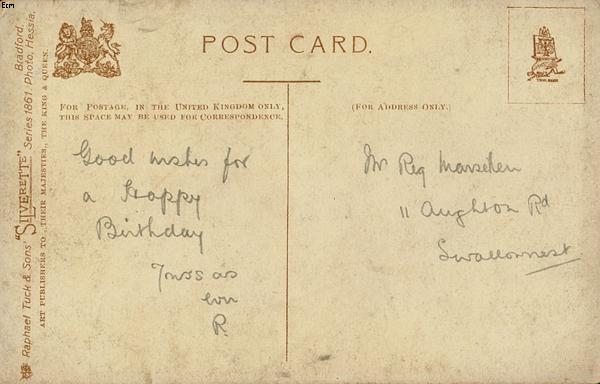 Ecm
POST CARD.
FOR POSTAGE, IN THE UNITED KINGDOM ONLY,
THIS SPACE MAY BE USED FOR CORRESPONDENCE.
(FOR ADDRESS ONLY.)
Good wishes for
a Happy
Birthday
as
R.
Mr Reg
11 Aughton Rd
Swallownest
Raphael Tuck & Sons' "SILVERETTE" Bradford.
Series 1861. Photo, Hessia.
ART PUBLISHERS TO THEIR MAJESTIES, THE KING & QUEEN.